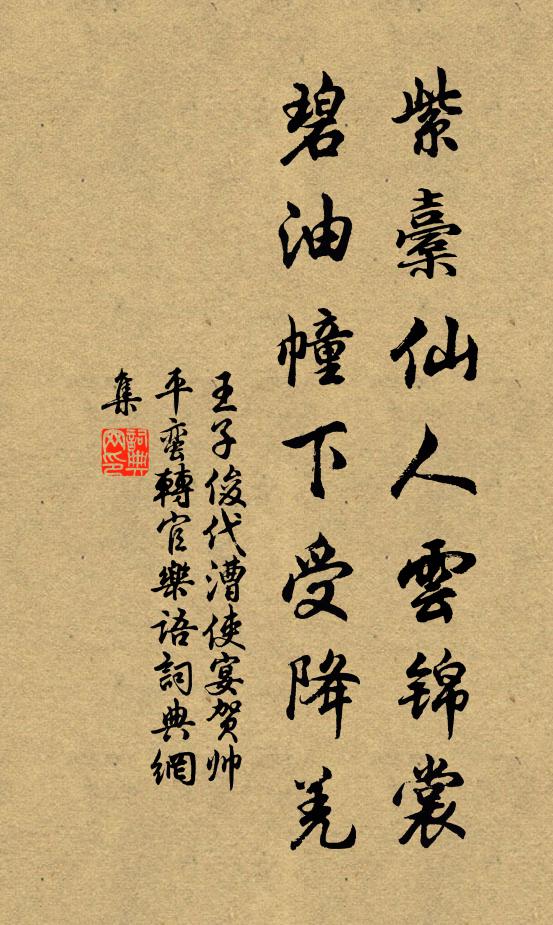 紫橐仙人雲錦裳
碧油幢下受降羌
王子俊代漕使宴賀帅
平蛮轉官樂語詞典網
集
詞典網印